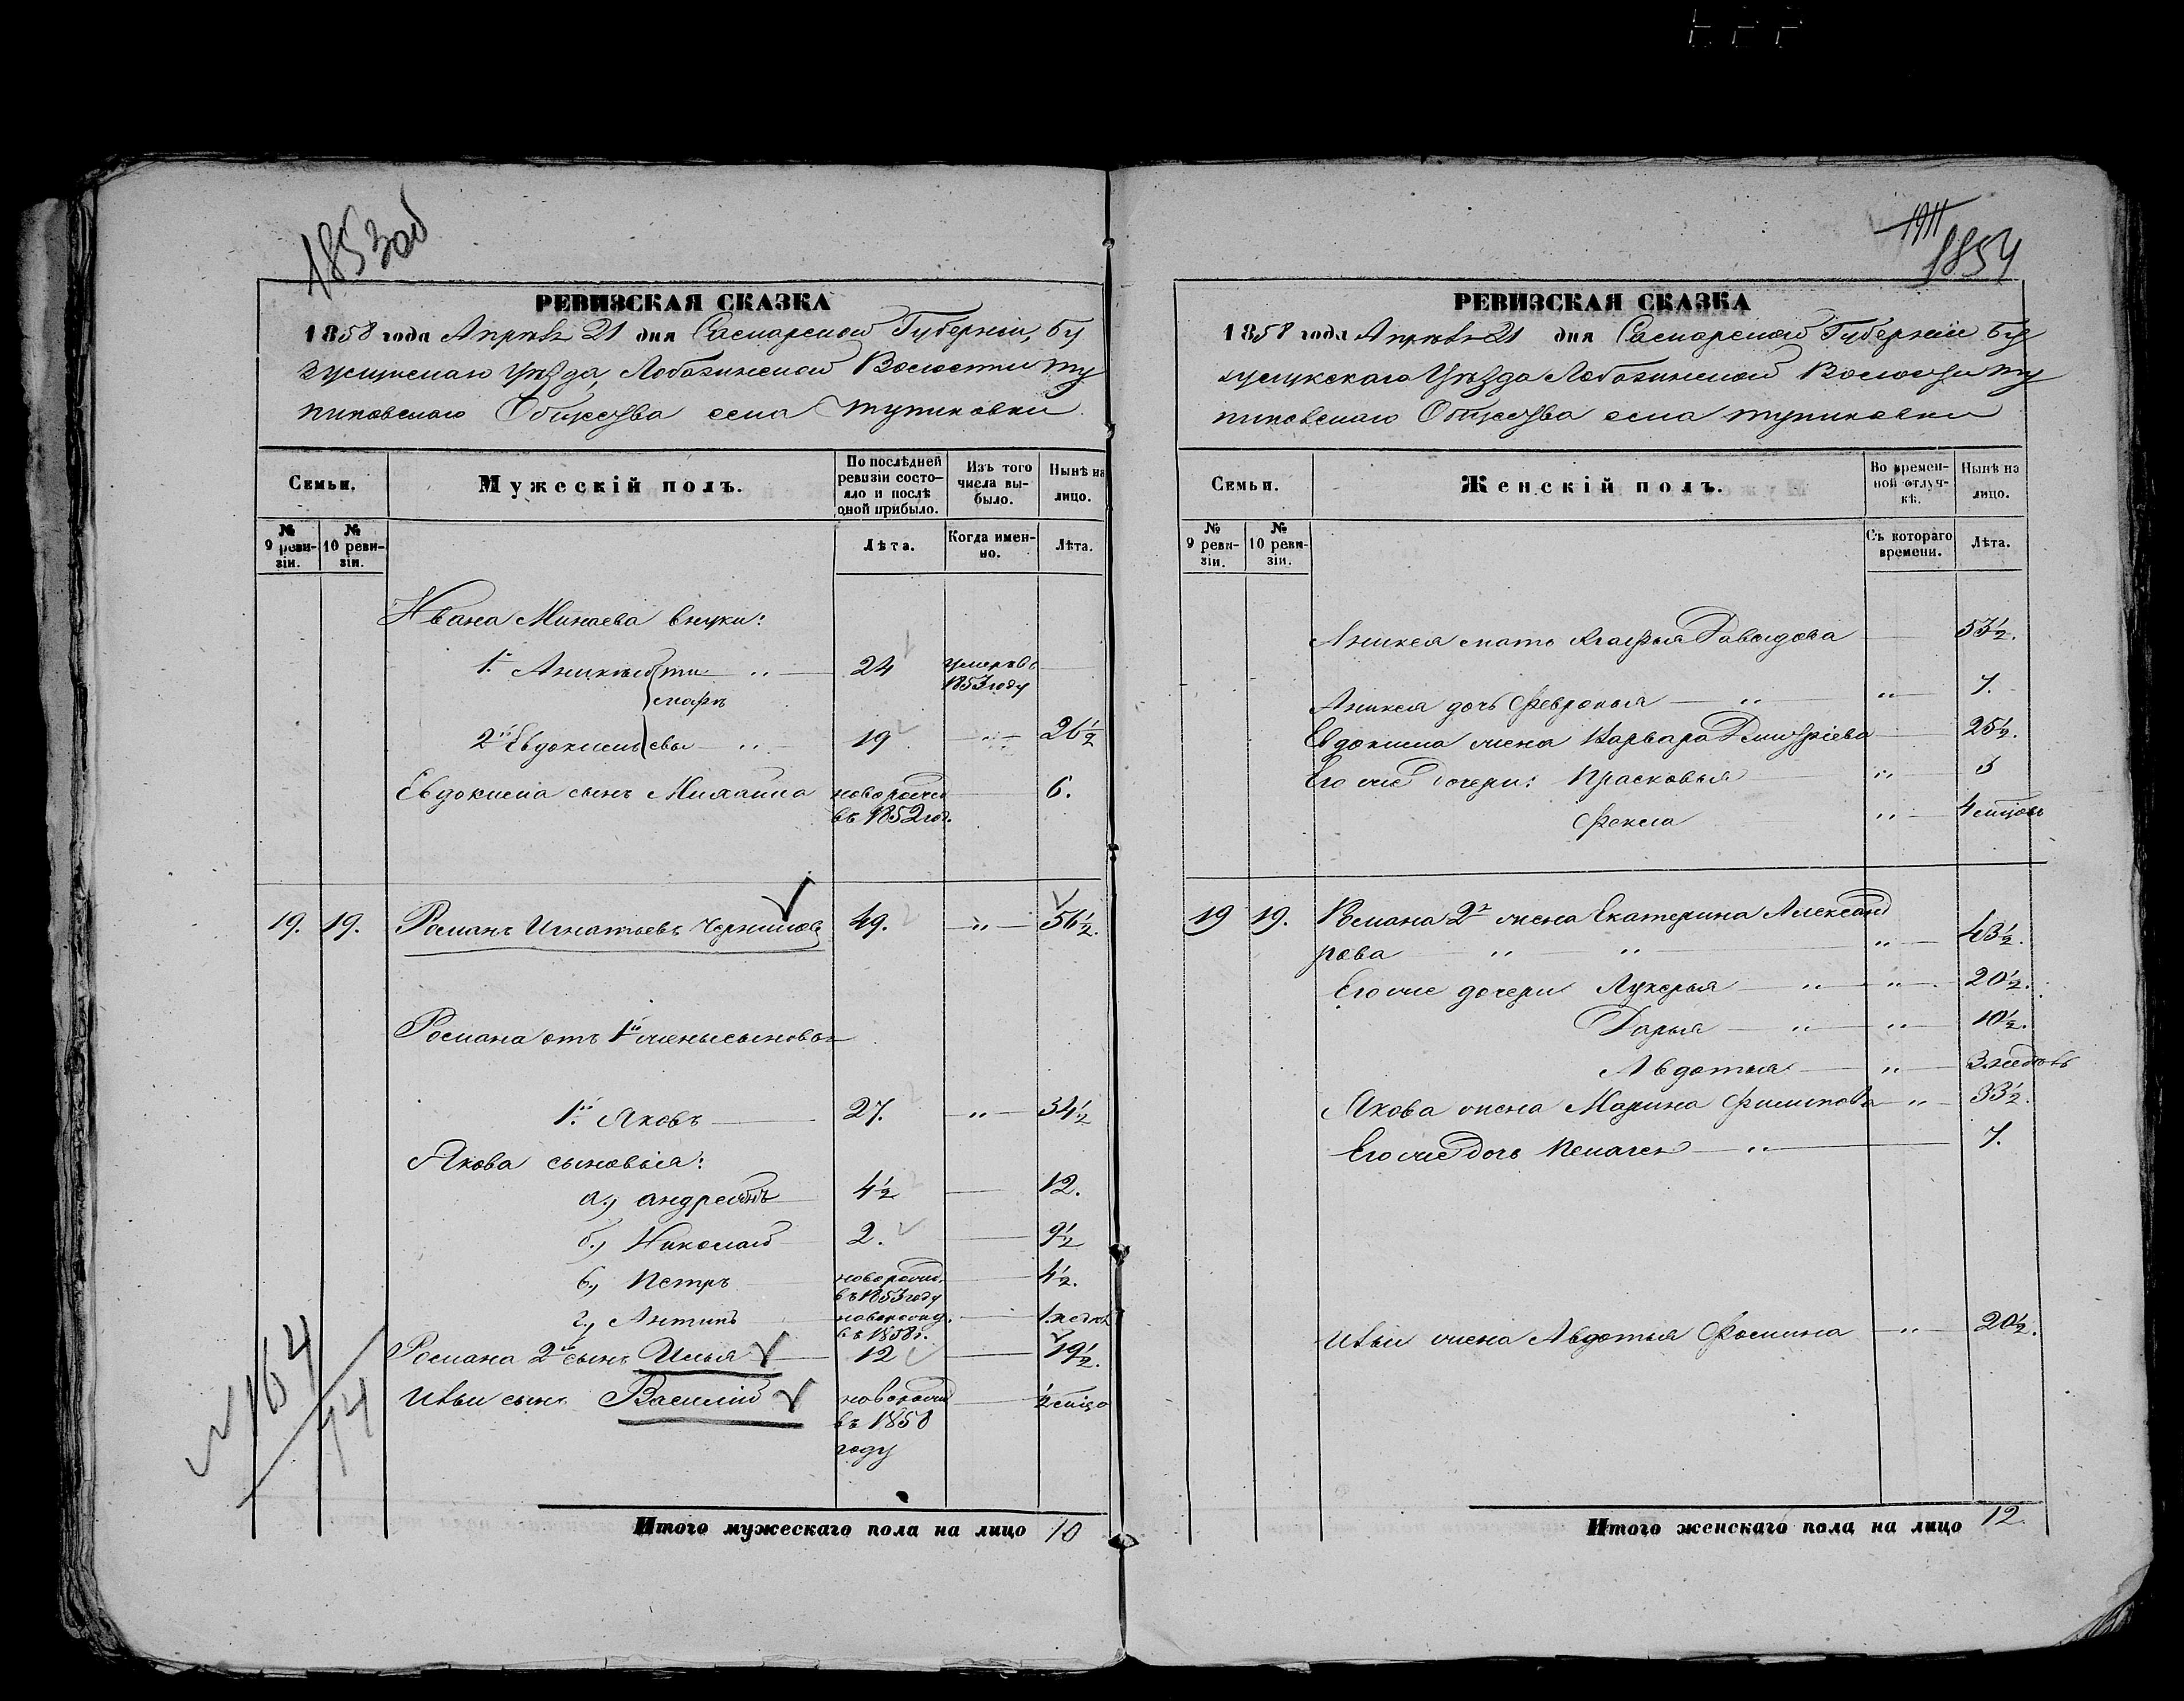 1853 об
РЕВИЗСКАЯ СКАЗКА
1858 года Апрѣля 21 дня Самарской Губерніи, Бу
зулуцкаго Уѣзда, Лобазинской Волости Ту
пиковскаго Общества села Тупиковки
Семьи.
Мужескій полъ.
По послѣдней ревизіи состояло и послѣ оной прибыло.
Изъ того числа выбыло.
Нынѣ на лицо.
№ 9 ревизіи.
№ 10 ревизіи.
Лѣта.
Когда именно.
Лѣта.
Ивана Минаева внуки:
1й Аникѣй Ти 24 умеръ въ 1853 году
мофѣ
2й Евдокимъ евы 19 26½
Евдокима сынъ Михаила новорожден въ 1852 год. 6.
19. 19. Романъ Игнатьевъ 49. 56½.
Романа отъ 1й жены сыновья
1й Яковъ 27. 34½
Якова сыновья:
а., Андреянъ 4½ 12.
б., Николай 2. 9½
в., Петръ новорожд. въ 1853 году 4½.
г., Антипъ новорожд. въ 1858 г. 1. недѣл
Романа 2й сынъ Илья 12 19½.
Ильи сынъ Василій новорожд въ 1858 году ½ мѣсяц
№ 164
74
Итого мужескаго пола на лицо 10
1911
1854
РЕВИЗСКАЯ СКАЗКА
1858 года Апрѣля 21 дня Самарской Губерніи Бу
зулуцкаго Уѣзда Лобазинской Волости Ту
пиковскаго Общества села Тупиковки
Семьи.
Женскій полъ.
Во временной отлучкѣ.
Нынѣ на лицо.
№ 9 ревизіи.
№ 10 ревизіи.
Съ котораго времени.
Лѣта.
Аникея мать Агафья Давыдова 53½.
Аникея дочь Февронья 7.
Евдокима жена Варвара Дмитріева 25½.
Его же дочери: Прасковья 5
Фекла 4 мѣсцовъ
19 19. Романа 2я жена Екатерина Александ
рова 43½.
Его же дочери Лукерья 20½.
Дарья 10½.
Авдотья 3. недѣль
Якова жена Марина Филипова 33½.
Его же дочь Пелагея 7.
Ильи жена Авдотья Фомина 20½.
Итого женскаго пола на лицо 12.